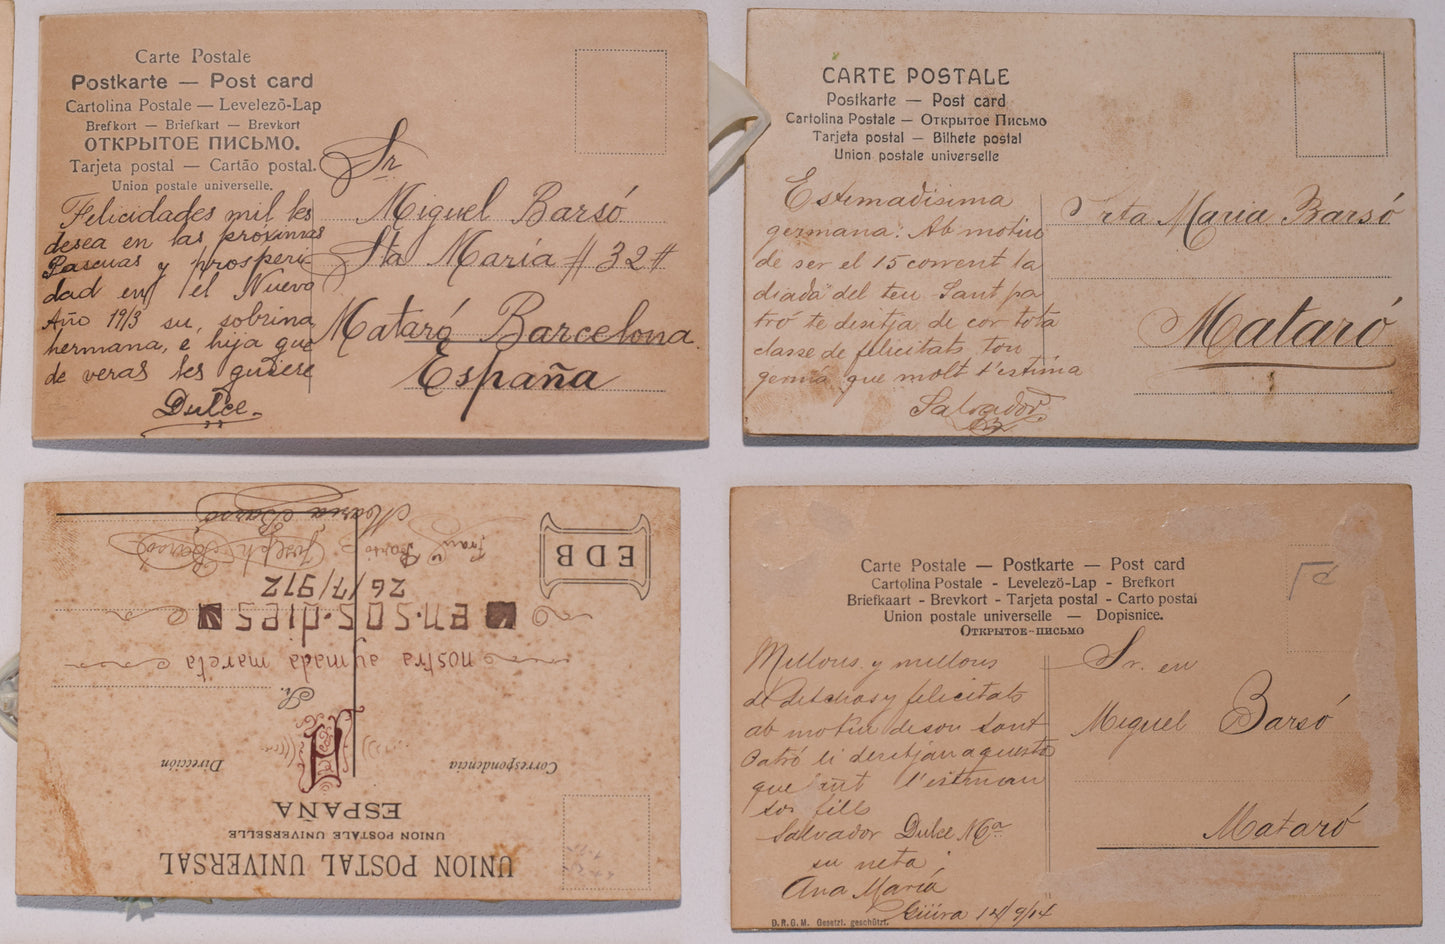 Carte Postale
Postkarte — Post card
Cartolina Postale — Levelezõ-Lap
Brefkort — Briefkart — Brevkort
ОТКРЫТОЕ ПИСЬМО.
Tarjeta postal — Cartão postal.
Union postale universelle.
Felicidades mil les
desea en las proximas
Pascuas y prosperi-
dad en el Nuevo
Año 1913 su, sobrina
hermana, e hija que
de veras les quiere
Dulce.
Sr
Miguel Barsó
Sta María # 32 #
Mataró Barcelona
España
CARTE POSTALE
Postkarte — Post card
Cartolina Postale — Открытое Письмо
Tarjeta postal — Bilhete postal
Union postale universelle
Estimadisima
germana: Ab motiu
de ser el 15 corrent la
diada del teu Sant pa
tró te desitja de cor tota
classe de felicitats ton
germá que molt t'estima
Salvador
Srta Maria Barsó
Mataró
UNION POSTAL UNIVERSAL
UNION POSTALE UNIVERSELLE
ESPAÑA
Correspondencia
Dirección
Sr.
nostra aymada mareta
EN·SOS·DIES
26/7/912
Joseph Barsó
Maria Barsó
EDB
Carte Postale — Postkarte — Post card
Cartolina Postale - Levelezö-Lap - Brefkort
Briefkaart - Brevkort - Tarjeta postal - Carto postal
Union postale universelle — Dopisnice.
Открытое-письмо
Millons y millons
de ditchas y felicitats
ab motiu de son Sant
Patró li desitjan aquests
que tant l'estiman
sos fills
Salvador Dulce Mª
su neta
Ana María
12/9/14
D.R.G.M. Gesetzl. geschützt.
Sr. en
Miguel Barsó
Mataró